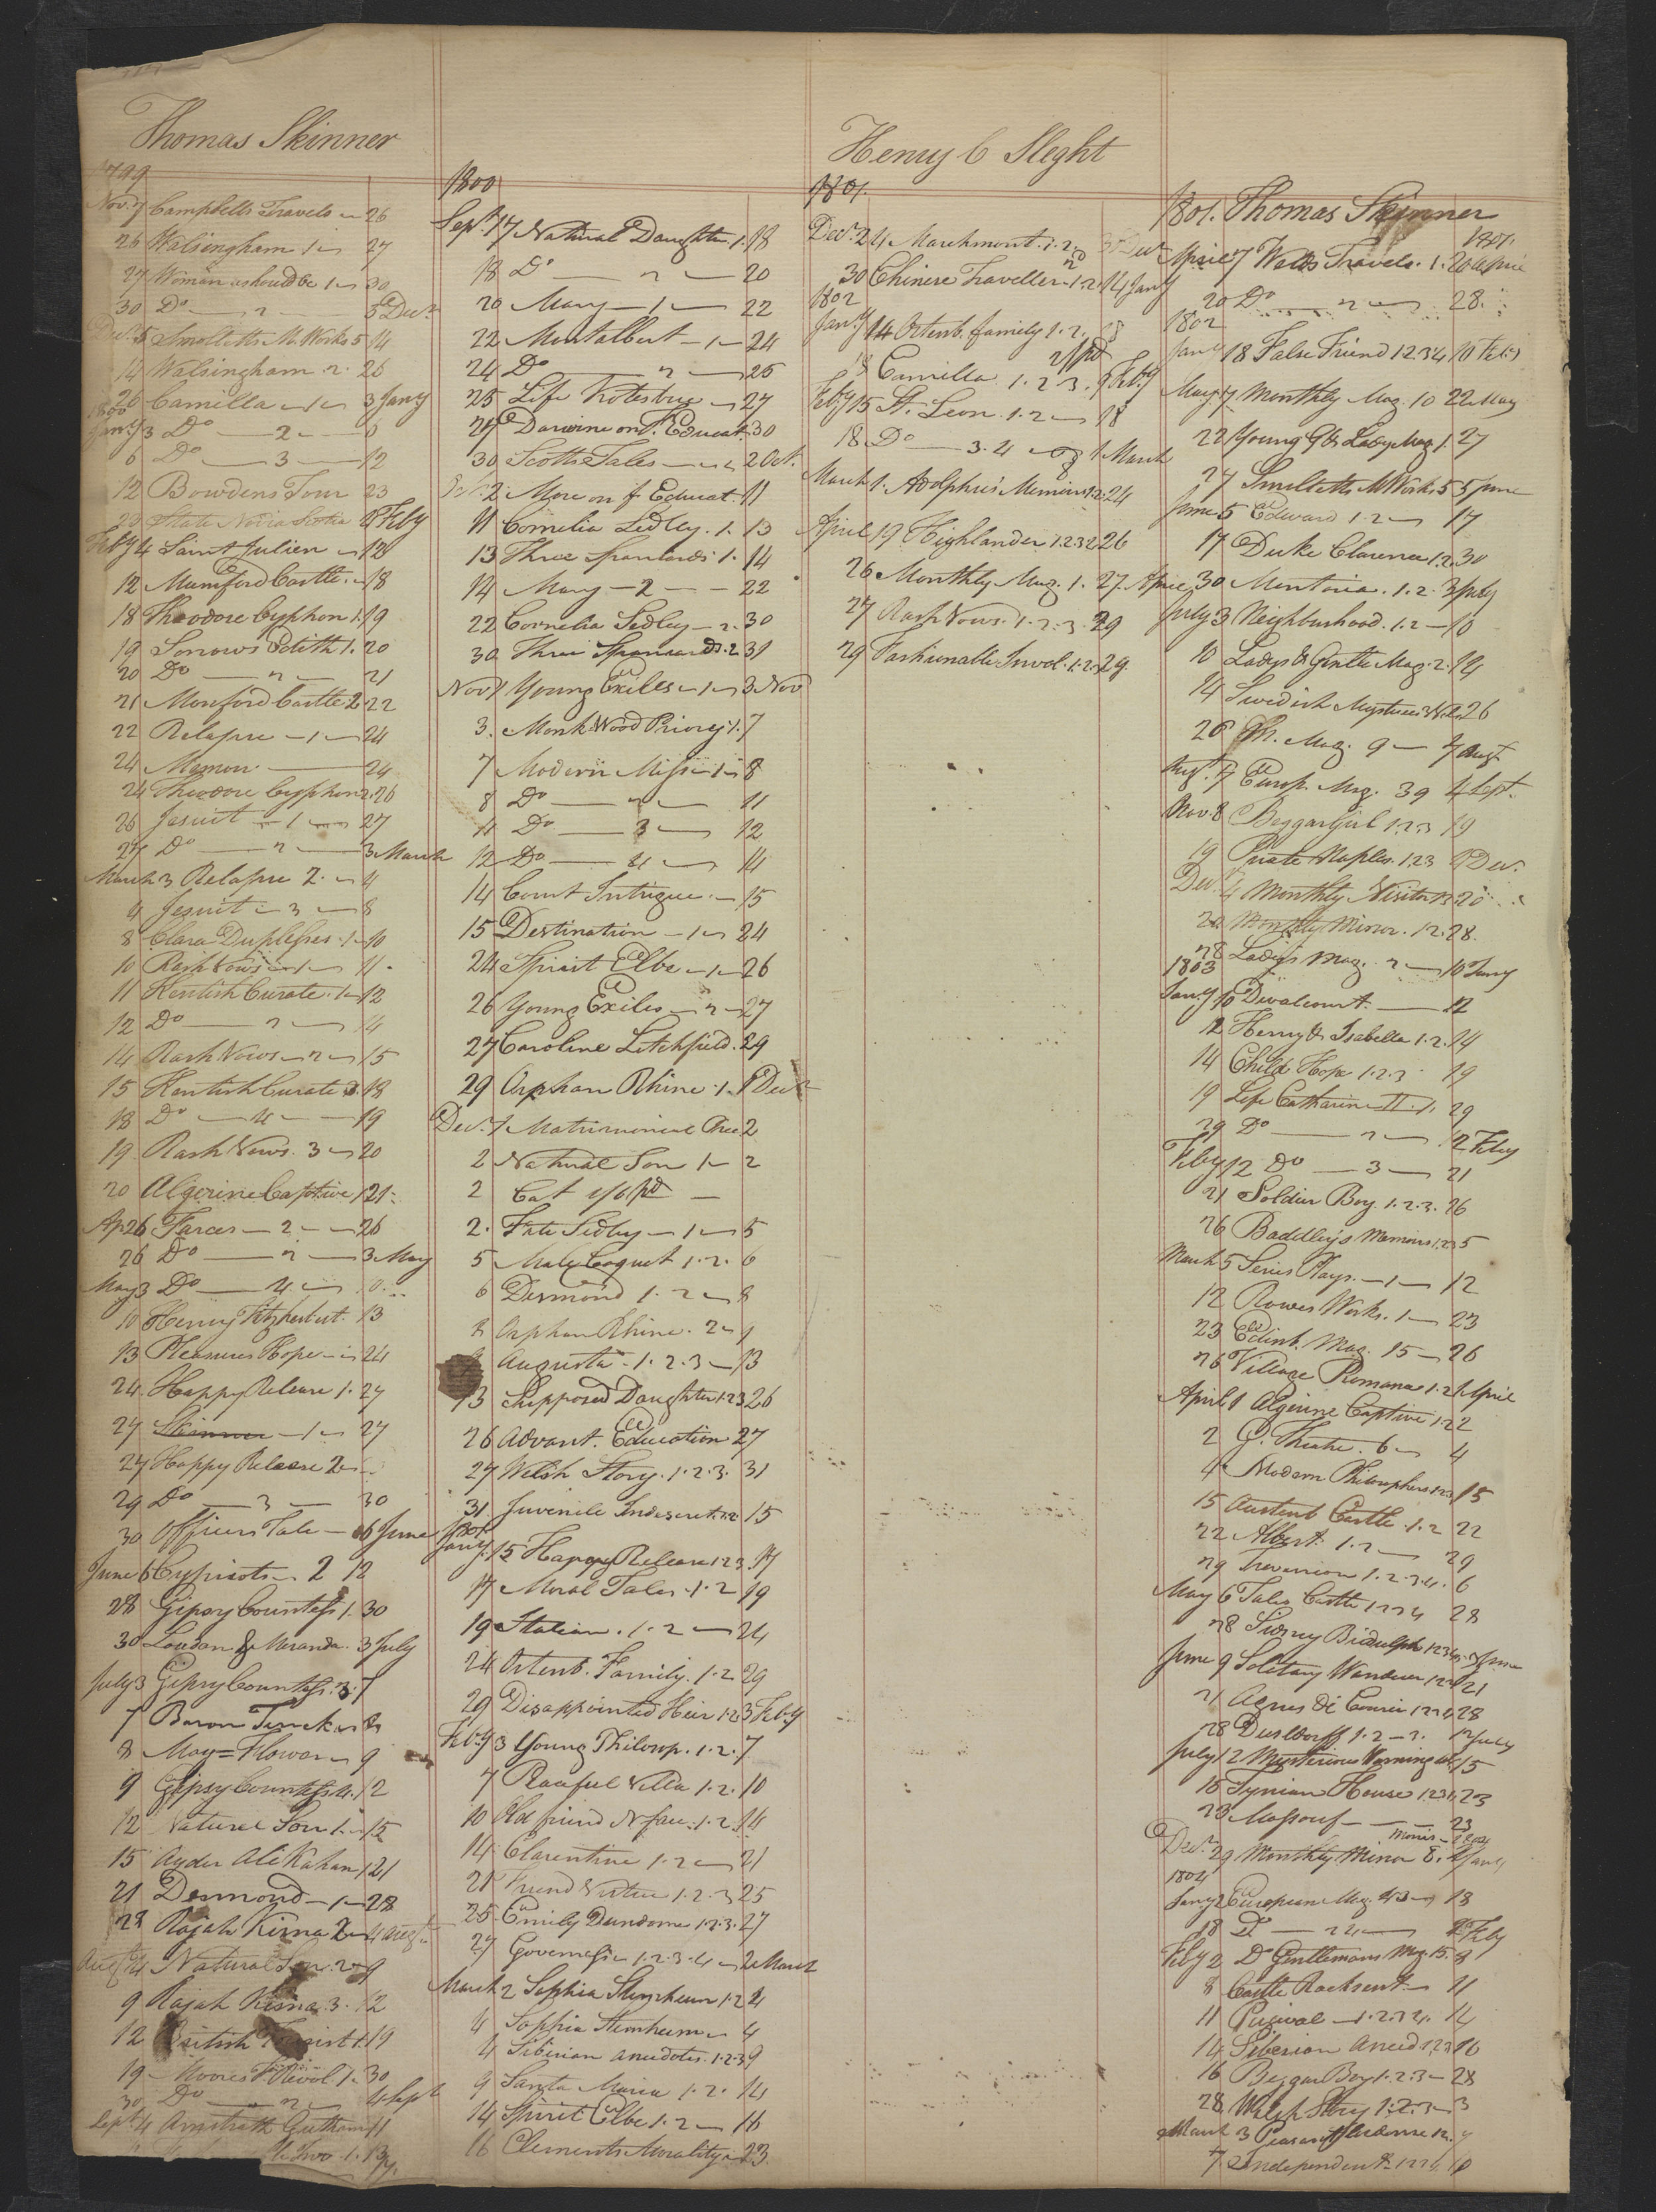 Thomas Skinner
1799
Nov. 7 Campbells Travels 26
26 Walsingham 1 27
27 Woman as should be 1 30
30 Do 2 5 Decr
Decr. 5 Smolletts M. Works 5 14
14 Walsingham. 2. 26
26 Camilla 1 3 Jany
1800
Jany 3 Do 2 6
6 Do 3 12
12 Bowdens Tour 23
23 State Novia Scotia Feby
Feby 4 Saint Julien 12
12 Munsford Castle. 18
18 Theodore Cyphon 1. 19
19 Sorrows Edith 1. 20
20 Do 2 21
21 Monford Castle 2 22
22 Relapse 1 24
24 Memon 24
24 Theodore Cyphon 2. 26
26 Jesuit 1 27
27 Do 2 3 March
March 3 Relapse 2. 4
4 Jesuit 3 8
8 Clara Duplesses. 1 10
10 Rash Vows 1 11
11 Kentish Curate. 1 12
12 Do 2 14
14 Rash Vows 2 15
15 Kentish Curate 3. 18
18 Do 4 19
19 Rash Vows. 3 20
20 Algerine Captive 1 21
Ap 26 Farces 2 26
26 Do 3 May
May 3 Do 4.
10 Henry Fitzherbert. 13
13 Pleasures Hope 24
24 Happy Release 1. 27
27 Skinner 1 27
27 Happy Release 2
29 Do 3 30
30 Officers Tale 6 June
June 6 Cypriots 2 12
28 Gipsy Countess 1. 30
30 Loudon & Miranda. 3 July
July 3 Gipsy Countess. 3. 7
7 Baron Trenck 8
8 May=Flower 9
9 Gipsy Countess 4. 12
12 Natural Son 1. 15
15 Ayder Ali Kahan 1 21
21 Desmond 1 28
28 Rajah Kisna 2 4 Augt
Augt 4 Natural Son. 2 9
9 Rajah Kisna. 3. 12
12 British 1. 19
19 Moores F. Revol 1. 30
30 Do 2 4 Sept
Sept. 4 11
1800
Sept. 17 Natural Daughter. 1. 18
18 Do 2 20
20 Mary 1 22
22 Montalbert 1 24
24 Do 2 25
25 Life Kotesbue 27
27 Darwine on F. Educat. 30
30 Scotts Tales 2 Oct.
Oct. 2 More on f Educat. 11
11 Cornelia Sedley. 1. 13
13 Three Spaniards. 1. 14
14 Mary 2 22
22 Cornelia Sedley 2. 30
30 Three Spaniards. 2 31
Nov 1 Young Exiles 1 3 Nov
3. Monk Wood Priory. 1. 7
7 Modern Miss 1 8
8 Do 2 11
11 Do 3 12
12 Do 4 14
14 Count Intrigue. 15
15 Destination 1 24
24 Spirit Elbe 1 26
26 Young Exiles 2 27
27 Caroline Litchfield. 29
29 Orphan Rhine. 1. 1 Decr
Decr. 1 Matrimonial 2
2 Natural Son 1 2
2 Cat pd
2. Fate Sedley 1 5
5 Male Coquet 1. 2. 6
6 Desmond 1. 2 8
8 Orphan Rhine. 2 9
9 Augusta. 1. 2. 3 13
13 Supposed Daughter 1. 2 3 26
26 Advant. Education 27
27 Welsh Story. 1. 2. 3. 31
31. Juvenile Indiscret. 1. 2 15
1801
Jany. 15 Happy Release 1 2 3. 17
17 Moral Tales. 1. 2 19
19 Italian. 1. 2 24
24 Ortenb. Family. 1. 2 29
29 Disappointed Heir 1. 2 3 Feby
Feby 3 Young Philosop. 1. 2. 7
7 Peaceful Villa 1. 2. 10
10 Old friend N face. 1. 2. 14
14. Clarentine 1. 2 21
21 Friend Virtue 1. 2. 3 25
25. Emily Dundorne 1. 2. 3. 27
27 Governess 1. 2. 3. 4 2 March
March 2 Sophia Sternheim 1. 2 4
4 Sophia Sternheim 4
4 Siberian anecdotes. 1. 2. 3 9
9 Santa Maria 1. 2. 14
14 Spirit Elbe 1. 2 16
16 Clements Morality 23.
Henry C Sleght
1801.
Decr. 24 Marchmont. 1. 2. 30 Decr
30 Chinese Traveller 1. 2. 14 Jany
1802
Jany 14 Ortenb. family 1. 2. 18
18 Camilla. 1. 2. 3. 9 Feby
Feby 15 St. Leon. 1. 2 18
18. Do 3. 4 1 March
March 1. Adolphus' Memoirs 1. 2. 24
April 19 Highlander 1. 2. 26
26 Monthly Mag. 1. 27.
27 Rash Vows. 1. 2. 3. 29
29 Fashionable Invol. 1. 2. 29
1801. Thomas Skinner
1801.
April 7 Welds Travels. 1. 20 April
20 Do 2 28.
1802
Jany 18 False Friend 1 2 3 4 10 Feby
May 17 Monthly Mag. 10 22 May
22 Young G & Ladys Mag 1. 27
27 Smolletts M Works 5 5 June
June 5 Edward 1. 2 17
17 Duke Clarence 1. 2. 30
30 Montoria. 1. 2. 3 July
July 3 Neighbourhood. 1. 2 10
10 Ladys & Gentle Mag. 2. 14
14 Swedish Mysteries 26
26 M. Mag. 9 7 Augt
Augt. 7 Europ. Mag. 39 4 Sept.
Nov 8 Beggar Girl 1. 2. 3 19
19 Pirate Naples. 1 2 3 Decr.
Decr. 4 Monthly Visitor 20
20 Monthly Mirror. 12. 28.
28 Lady's Mag. 2 10 Jany
1803
Jany 10 Divalcourt. 12
12 Henry & Isabella 1. 2. 14
14 Child Hope 1. 2. 3 19
19 Life Catharine II. 1. 29
29 Do 2 12 Feby
Feby 12 Do 3 21
21 Soldier Boy. 1. 2. 3. 26
26 Baddley's Memoirs 1. 2 3 5
March 5 Series Plays. 1 12
12 Rowes Works. 1 23
23 Edinb. Mag. 15 26
26 Village Romance 1. 2. 1 April
April 1 Algerine Captive 1. 2 2
2 G. Theatre. 6 4
4 Modern Philosophers 1 2 3 15
15 Austenb Castle. 1. 2 22
22 Albert. 1. 2 29
29 Trevanion 1. 2. 3. 4. 6
May 6 Tales Castle 1 2 3 4 28
28 Sidney Bidulph June
June 9 Solitary Wanderer 21
21 Agnes di Courci 1 2 3 4 28
28 Dusldorff 1. 2 3. 12 July
July 12 Mysterious Warning 15
15 Tynian House 1 2 3 4 23
23 Massouf 23
Decr. 29 Monthly Mirror 8. Jany
1804
Jany 2 European Mag. 43 18
18 Do 44 2 Feby
Feby 2 Do Gentlemans Mag 15. 8
8 Castle Rackrent 11
11 Percival 1. 2. 3 4. 14
14 Siberian Anecd 1. 2. 3 16
16 Beggar Boy 1. 2. 3 28
28 Welsh Story 1. 2. 3 3
March 3 Peasant Ardenne 1 2. 7
7. Independent 10